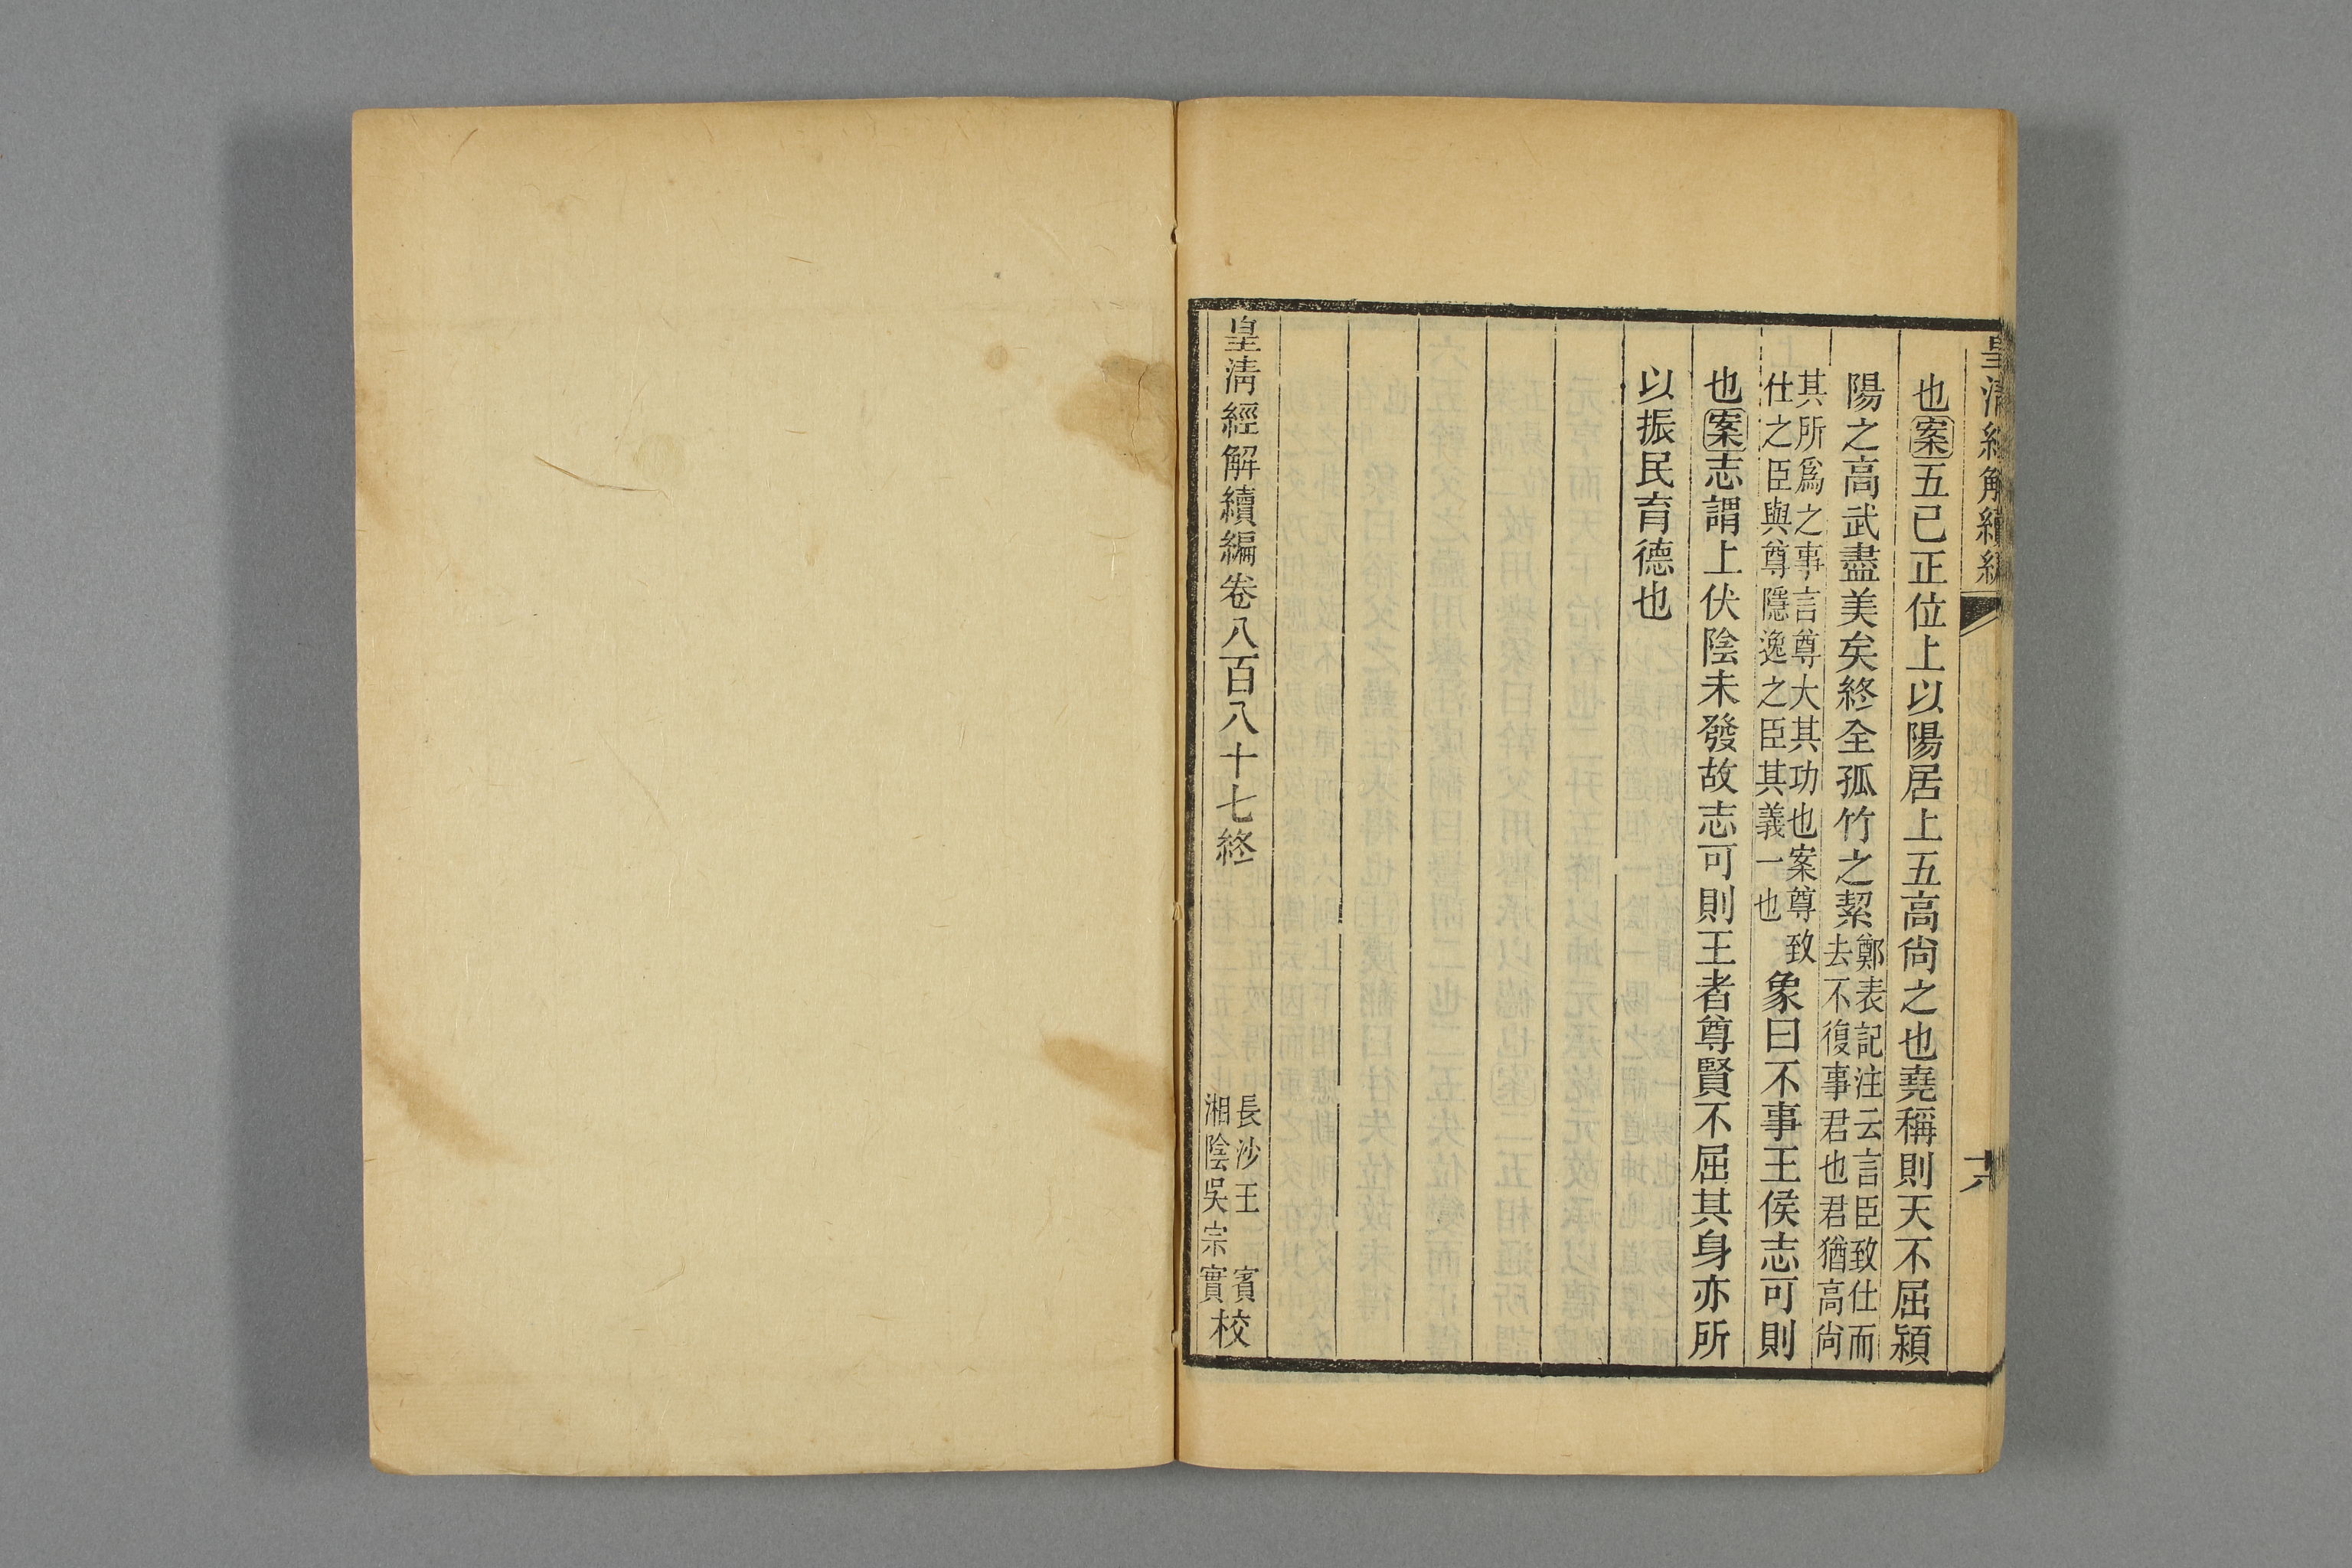 皇清經解續編
六
也案五已正位上以陽居上五高尙之也堯稱則天不屈潁
陽之高武盡美矣終全孤竹之絜鄭表記注云言臣致仕而
去不復事君也君猶高尙
其所爲之事言尊大其功也案尊致
仕之臣與尊隱逸之臣其義一也
象曰不事王侯志可則
也案志謂上伏陰未發故志可則王者尊賢不屈其身亦所
以振民育德也
皇清經解續編卷八百八十七終
長沙王賓
湘陰吳宗實
校